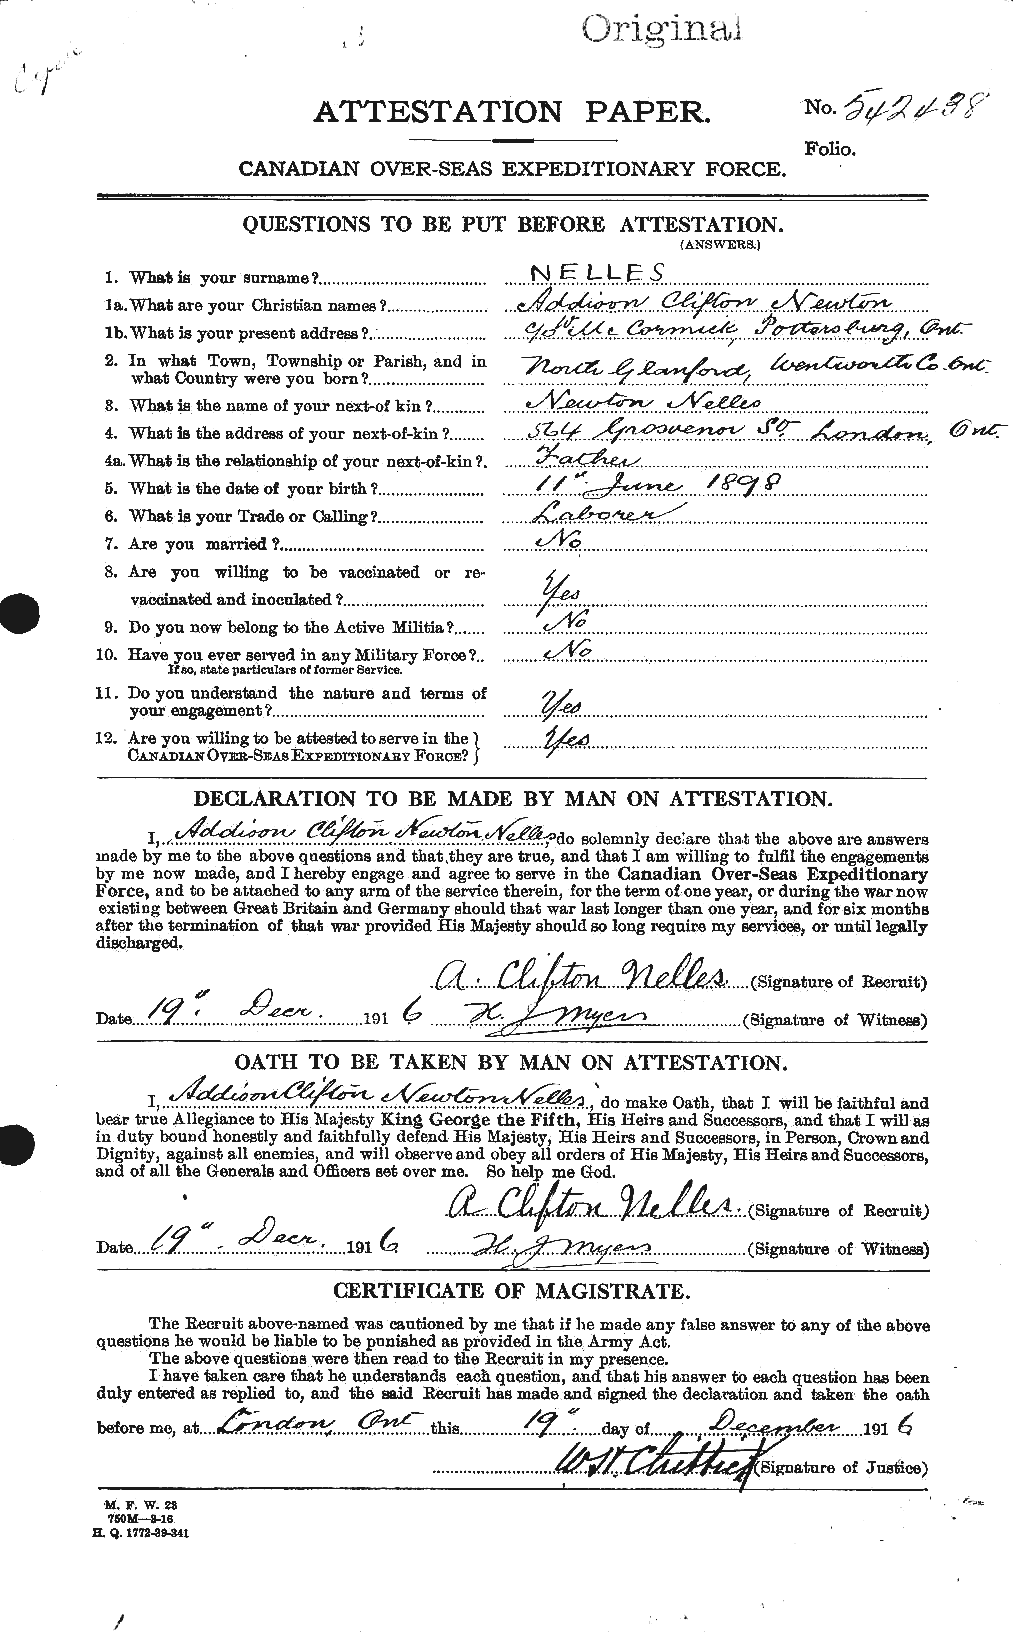 Original
ATTESTATION PAPER.
No. 542438
Folio.
CANADIAN OVER-SEAS EXPEDITIONARY FORCE.
QUESTIONS TO BE PUT BEFORE ATTESTATION.
(ANSWERS.)
1. What is your surname? NELLES
1a. What are your Christian names? Addison Clifton Newton
1b. What is your present address? McCormick, Pottersburg, Ont.
2. In what Town, Township or Parish, and in
what Country were you born? North Glanford, Wentworth Co. Ont.
3. What is the name of your next-of kin? Newton Nelles
4. What is the address of your next-of-kin? 564 Grosvenor St. London, Ont.
4a. What is the relationship of your next-of-kin? Father
5. What is the date of your birth? 11" June 1898
6. What is your Trade or Calling? Laborer
7. Are you married? No
8. Are you willing to be vaccinated or re-
vaccinated and inoculated? Yes
9. Do you now belong to the Active Militia? No
10. Have you ever served in any Military Force? No
If so, state particulars of former Service.
11. Do you understand the nature and terms of
your engagement? Yes
12. Are you willing to be attested to serve in the
CANADIAN OVER-SEAS EXPEDITIONARY FORCE? } Yes
DECLARATION TO BE MADE BY MAN ON ATTESTATION.
I, Addison Clifton Newton Nelles, do solemnly declare that the above are answers
made by me to the above questions and that they are true, and that I am willing to fulfil the engagements
by me now made, and I hereby engage and agree to serve in the Canadian Over-Seas Expeditionary
Force, and to be attached to any arm of the service therein, for the term of one year, or during the war now
existing between Great Britain and Germany should that war last longer than one year, and for six months
after the termination of that war provided His Majesty should so long require my services, or until legally
discharged.
A. Clifton Nelles. (Signature of Recruit)
Date 19". Decr. 1916 H. J Myers (Signature of Witness)
OATH TO BE TAKEN BY MAN ON ATTESTATION.
I, Addison Clifton Newton Nelles, do make Oath, that I will be faithful and
bear true Allegiance to His Majesty King George the Fifth, His Heirs and Successors, and that I will as
in duty bound honestly and faithfully defend His Majesty, His Heirs and Successors, in Person, Crown and
Dignity, against all enemies, and will observe and obey all orders of His Majesty, His Heirs and Successors,
and of all the Generals and Officers set over me. So help me God.
A. Clifton Nelles. (Signature of Recruit)
Date 19". Decr. 1916 H. J Myers (Signature of Witness)
CERTIFICATE OF MAGISTRATE.
The Recruit above-named was cautioned by me that if he made any false answer to any of the above
questions he would be liable to be punished as provided in the Army Act.
The above questions were then read to the Recruit in my presence.
I have taken care that he understands each question, and that his answer to each question has been
duly entered as replied to, and the said Recruit has made and signed the declaration and taken the oath
before me, at London, Ont this 19" day of December 1916
(Signature of Justice)
M. F. W. 23
750M—8-16
H. Q. 1772-39-341